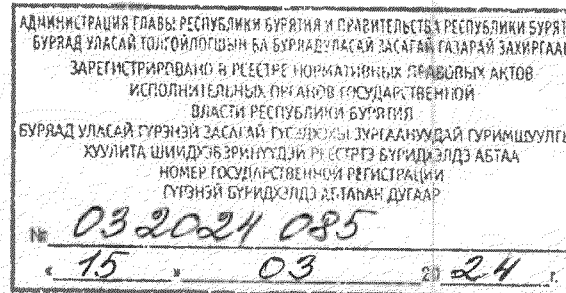 АДМИНИСТРАЦИЯ ГЛАВЫ РЕСПУБЛИКИ БУРЯТИЯ И ПРАВИТЕЛЬСТВА РЕСПУБЛИКИ БУРЯТ
БУРЯАД УЛАСАЙ ТОЛГОЙЛОГШЫН БА БУРЯАД УЛАСАЙ ЗАСАГАЙ ГАЗАРАЙ ЗАХИРГААН
ЗАРЕГИСТРИРОВАНО В РЕЕСТРЕ НОРМАТИВНЫХ ПРАВОВЫХ АКТОВ
ИСПОЛНИТЕЛЬНЫХ ОРГАНОВ ГОСУДАРСТВЕННОЙ
ВЛАСТИ РЕСПУБЛИКИ БУРЯТИЯ
БУРЯАД УЛАСАЙ ГҮРЭНЭЙ ЗАСАГАЙ ЗУРГААНУУДАЙ ГУРИМШУУЛГ
ХУУЛИТА ШИИДХЭБЭРИНҮҮДЭЙ РЕЕСТРТЭ БҮРИДХЭЛДЭ АБТАА
НОМЕР ГОСУДАРСТВЕННОЙ РЕГИСТРАЦИИ
ГҮРЭНЭЙ БҮРИДХЭЛДЭ АБТАҺАН ДУГААР
№ 03 2024 085
« 15 » 03 20 24 г.